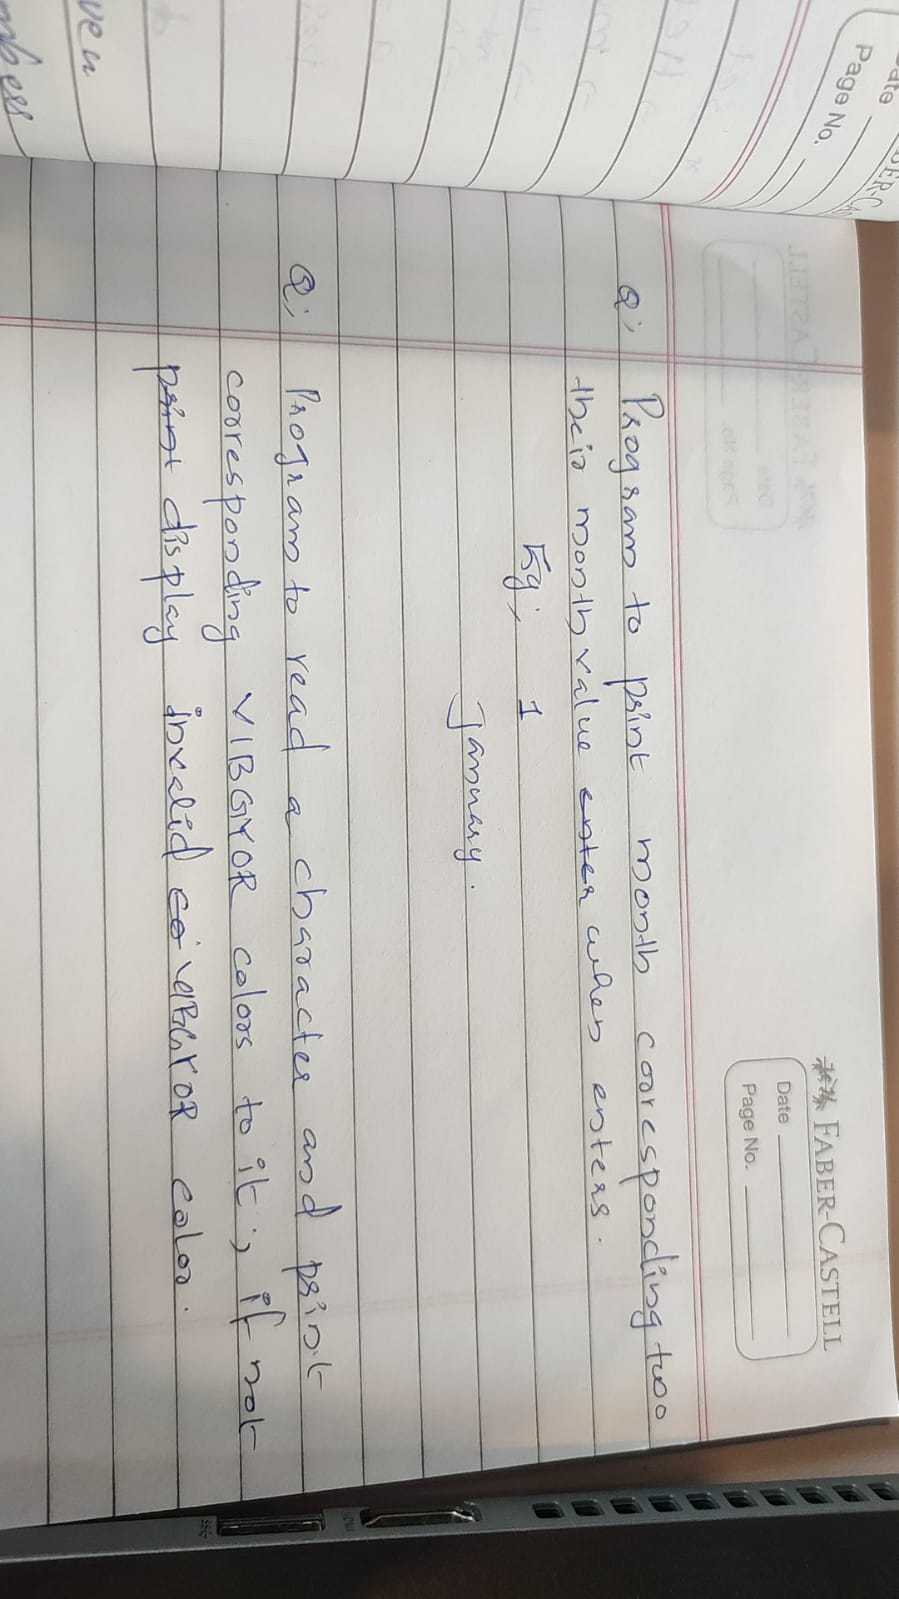 ate
BER-CAS
Page No.
FABER-CASTELL
Date
Page No.
Q: Program to print month cooresponding two
their month value enter when enters.
Eg: 1
January.
Q: Program to read a character and print
cooresponding VIBGYOR colors to it; if not
print display invalid co VIBGYOR color.
ven
mbers